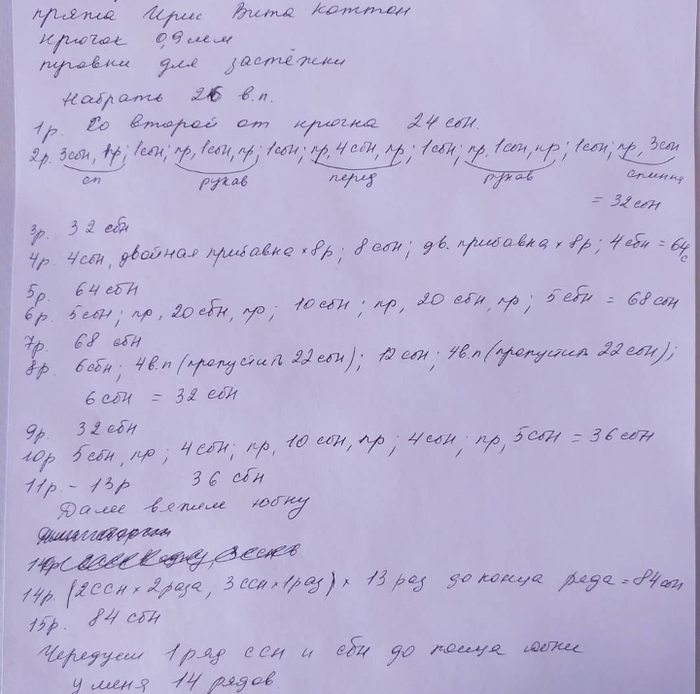 пряжа Ирис Вита Коттон
крючок 0,9 мм
пуговки для застёжки
Набрать 26 в.п.
1р. Со второй от крючка 24 сбн.
2р. 3сбн, пр; 1сбн; пр, 1сбн, пр; 1сбн; пр, 4сбн, пр; 1сбн; пр, 1сбн, пр; 1сбн; пр, 3сбн
сп рукав перед рукав спинка
= 32 сбн
3р. 32 сбн
4р. 4сбн, двойная прибавка × 8р; 8 сбн; дв. прибавка × 8р; 4 сбн = 64 с
5р. 64 сбн
6р. 5сбн; пр, 20 сбн, пр; 10 сбн; пр, 20 сбн, пр; 5 сбн = 68 сбн
7р. 68 сбн
8р. 6сбн; 4в.п (пропустить 22 сбн); 12 сбн; 4в.п (пропустить 22 сбн);
6 сбн = 32 сбн
9р. 32 сбн
10р. 5 сбн, пр; 4 сбн; пр, 10 сбн, пр; 4 сбн; пр, 5сбн = 36 сбн
11р. - 13р 36 сбн
Далее вяжем юбку
14р. (2ссн × 2раза, 3ссн × 1раз) × 13 раз до конца ряда = 84 сбн
15р. 84 сбн
Чередуем 1 ряд ссн и сбн до конца юбки
у меня 14 рядов.